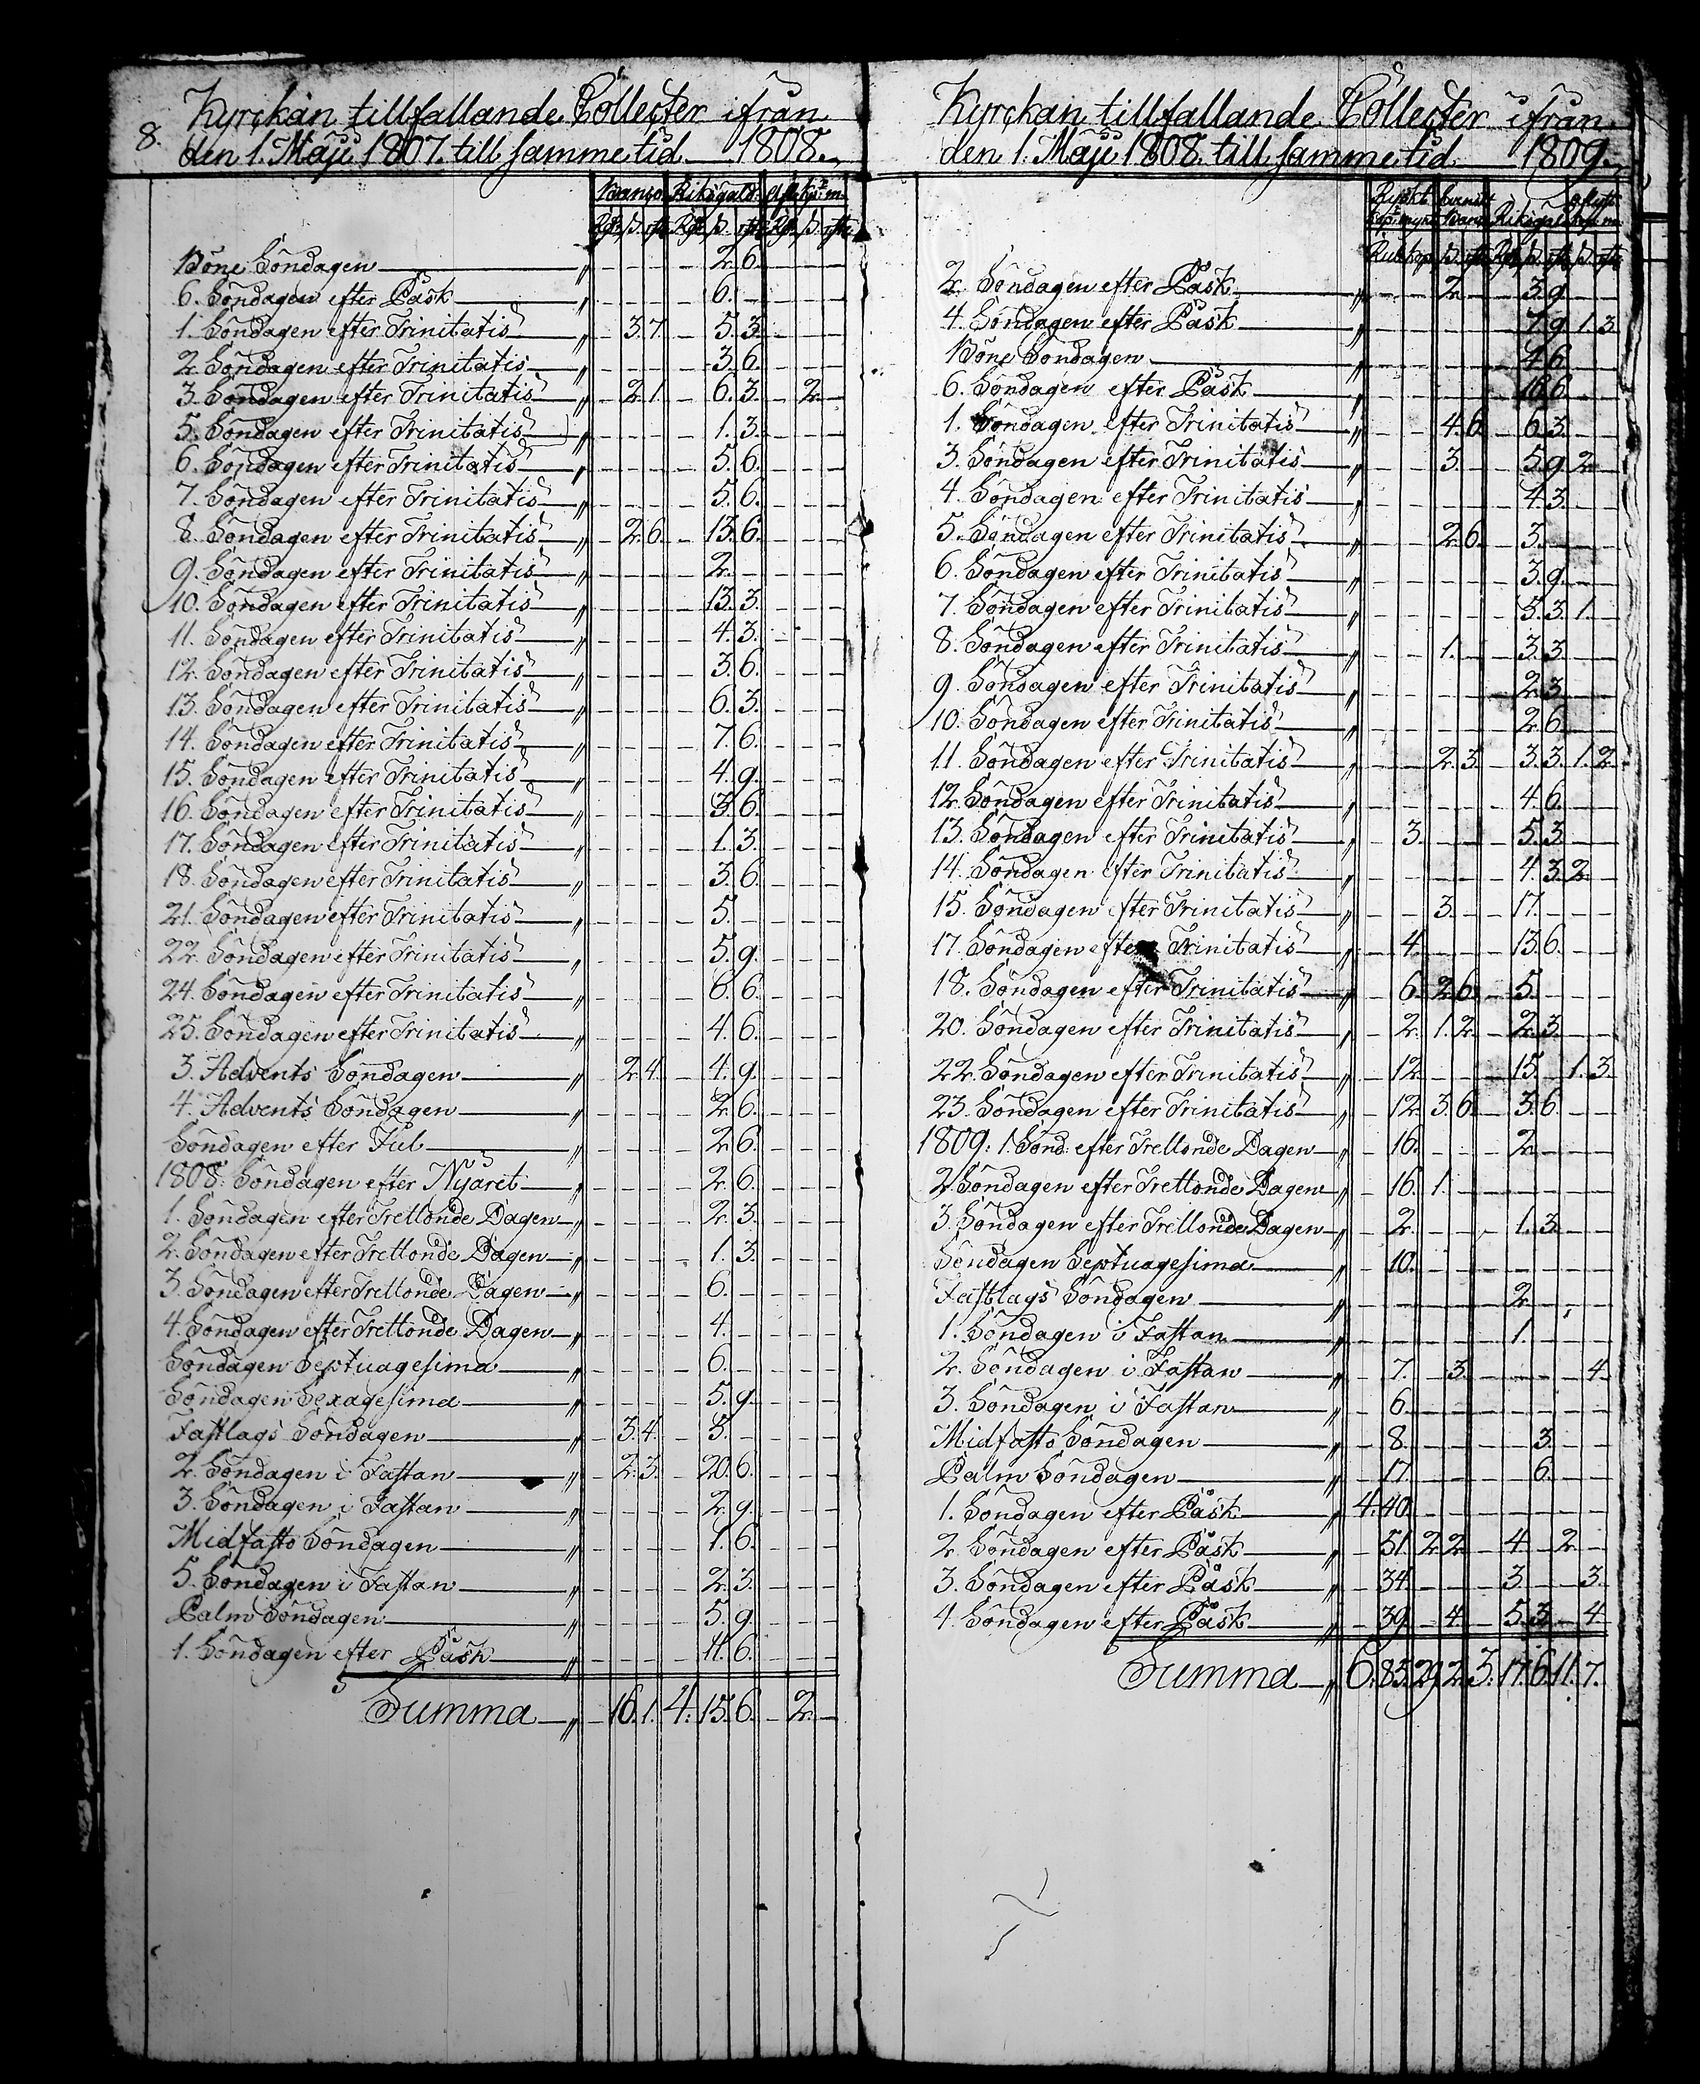 8.
Kyrckan tillfallande Collecter ifrån
den 1. Maji 1807. till samme tid 1808.
Banco. Riksgäld.
Böne Söndagen — 2. 6.
6. Söndagen efter Påsk — 6.
1. Söndagen efter Trinitatis — 3. 7. — 5. 3.
2. Söndagen efter Trinitatis — 3. 6.
3. Söndagen efter Trinitatis — 2. 1. — 6. 3. — 2.
5. Söndagen efter Trinitatis — 1. 3.
6. Söndagen efter Trinitatis — 5. 6.
7. Söndagen efter Trinitatis — 5. 6.
8. Söndagen efter Trinitatis — 2. 6. — 13. 6.
9. Söndagen efter Trinitatis — 2.
10. Söndagen efter Trinitatis — 13. 3.
11. Söndagen efter Trinitatis — 4. 3.
12. Söndagen efter Trinitatis — 3. 6.
13. Söndagen efter Trinitatis — 6. 3.
14. Söndagen efter Trinitatis — 7. 6.
15. Söndagen efter Trinitatis — 4. 9.
16. Söndagen efter Trinitatis — 3. 6.
17. Söndagen efter Trinitatis — 1. 3.
18. Söndagen efter Trinitatis — 3. 6.
21. Söndagen efter Trinitatis — 5.
22. Söndagen efter Trinitatis — 5. 9.
24. Söndagen efter Trinitatis — 6. 6.
25. Söndagen efter Trinitatis — 4. 6.
3. Advents Söndagen — 2. 4. — 4. 9.
4. Advents Söndagen — 2. 6.
Söndagen efter Jul — 2. 6.
1808. Söndagen efter Nyåret — 2. 6.
1. Söndagen efter Trettonde Dagen — 2. 3.
2. Söndagen efter Trettonde Dagen — 1. 3.
3. Söndagen efter Trettonde Dagen — 6.
4. Söndagen efter Trettonde Dagen — 4.
Söndagen Septuagesima — 6.
Söndagen Sexagesima — 5. 9.
Fastlags Söndagen — 3. 4. — 3.
2. Söndagen i Fastan — 2. 3. — 20. 6.
3. Söndagen i Fastan — 2. 9.
Midfasto Söndagen — 1. 6.
5. Söndagen i Fastan — 2. 3.
Palm Söndagen — 5. 9.
1. Söndagen efter Påsk — 11. 6.
Summa — 16. 1. 4. 15. 6. — 2.
Kyrckan tillfallande Collecter ifrån
den 1. Maji 1808. till samme tid 1809.
2. Söndagen efter Påsk — 2 — 3. 9.
4. Söndagen efter Påsk — 7. 9. 1. 3.
Böne Söndagen — 4. 6.
6. Söndagen efter Påsk — 6.
1. Söndagen efter Trinitatis — 4. 6. — 6. 3.
3. Söndagen efter Trinitatis — 3. — 5. 9. 2.
4. Söndagen efter Trinitatis — 4. 3.
5. Söndagen efter Trinitatis — 2. 6. — 3.
6. Söndagen efter Trinitatis — 3. 9.
7. Söndagen efter Trinitatis — 5. 3. 1.
8. Söndagen efter Trinitatis — 1. — 3. 3.
9. Söndagen efter Trinitatis — 2. 3.
10. Söndagen efter Trinitatis — 2. 6.
11. Söndagen efter Trinitatis — 2. 3. — 3. 3. 1. 2.
12. Söndagen efter Trinitatis — 4. 6.
13. Söndagen efter Trinitatis — 3. — 5. 3.
14. Söndagen efter Trinitatis — 4. 3. 2.
15. Söndagen efter Trinitatis — 3. — 17.
17. Söndagen efter Trinitatis — 4. — 13. 6.
18. Söndagen efter Trinitatis — 6. 2. 6. — 5.
20. Söndagen efter Trinitatis — 2. 1. 2. — 2. 3.
22. Söndagen efter Trinitatis — 12. — 15. — 1. 3.
23. Söndagen efter Trinitatis — 12. 3. 6. — 3. 6.
1809: 1. Sönd: efter Trettonde Dagen — 16. — 2.
2. Söndagen efter Trettonde Dagen — 16. 1.
3. Söndagen efter Trettonde Dagen — 2. — 1. 3.
Söndagen Septuagesima — 10.
Fastlags Söndagen — 2.
1. Söndagen i Fastan — 1.
2. Söndagen i Fastan — 7. — 3. — 4.
3. Söndagen i Fastan — 6.
Midfasto Söndagen — 8. — 3.
Palm Söndagen — 17. — 6.
1. Söndagen efter Påsk — 4. 40.
2. Söndagen efter Påsk — 51. 2 2. — 4. — 2.
3. Söndagen efter Påsk — 34. — 3. — 3.
4. Söndagen efter Påsk — 39. — 4. — 5. 3. — 4.
Summa — 6. 85. 29. 2. 3. 17. 6. 11. 7.